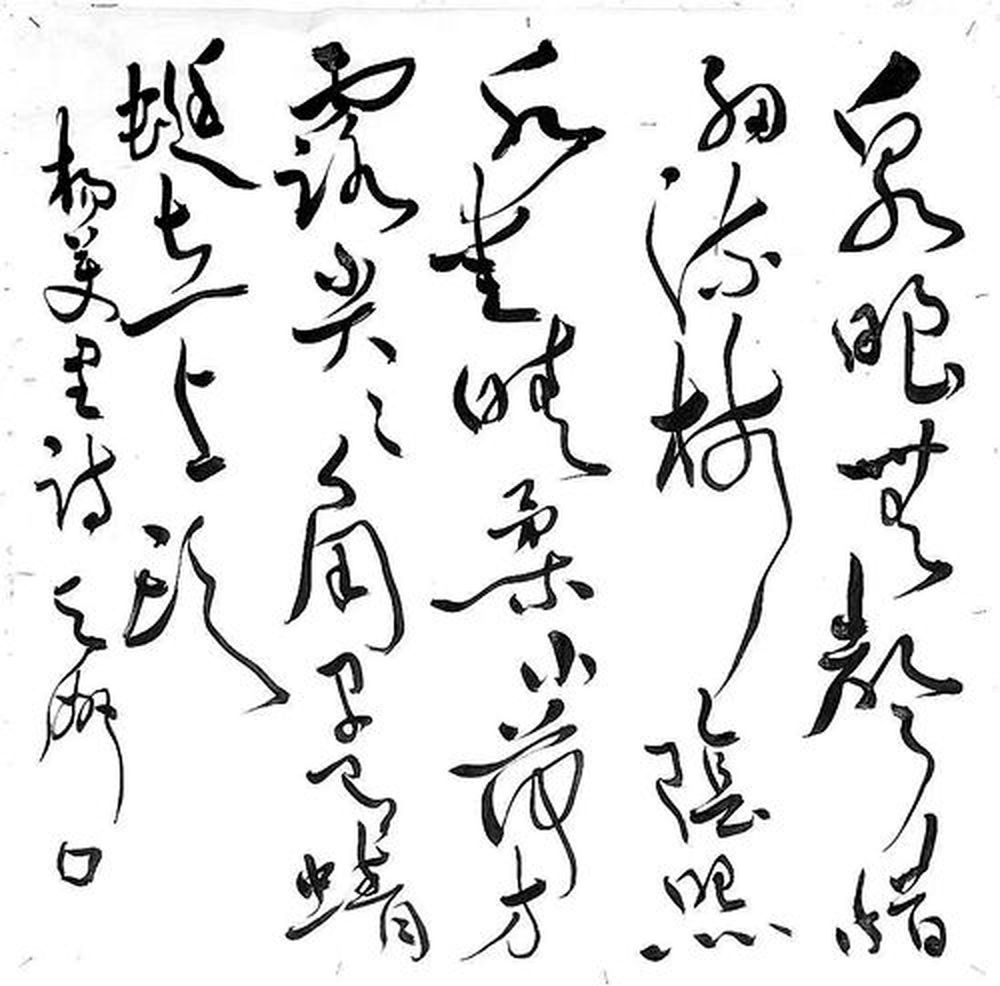 泉眼無聲惜
細流樹陰照
水愛晴柔小荷方
露尖々角早有蜻
蜓立上頭
楊萬里詩